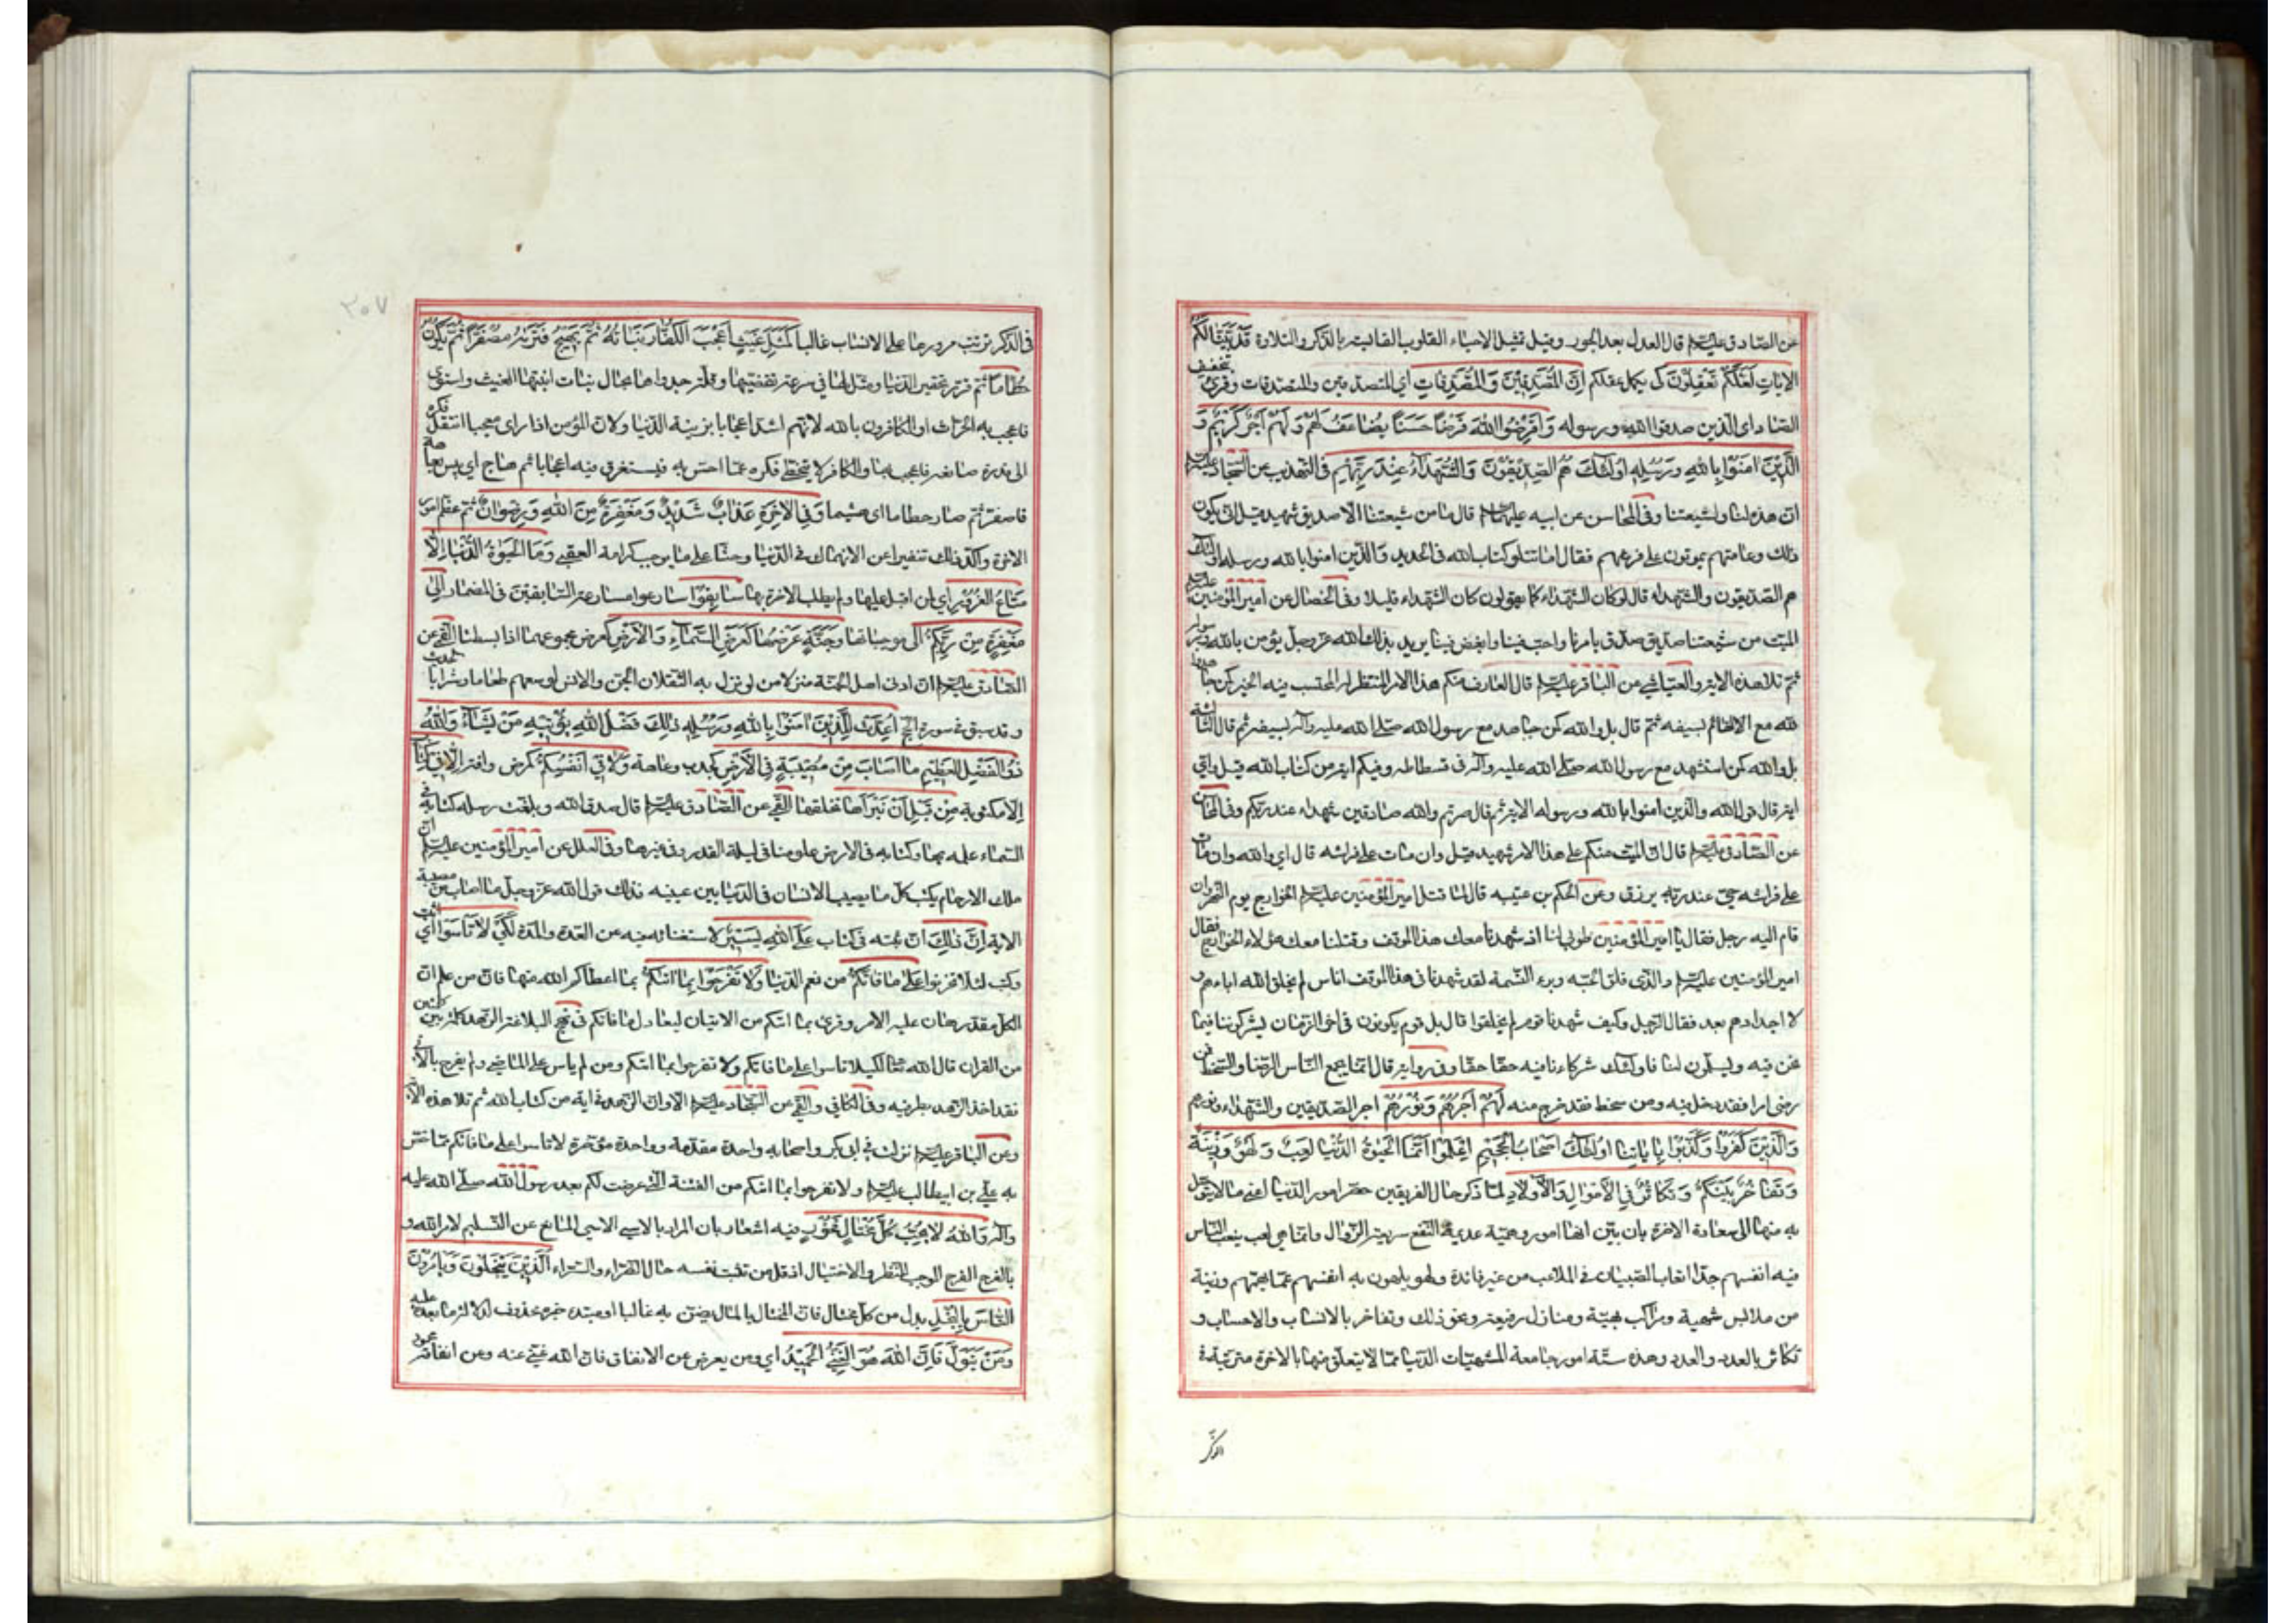 عن الصادق عليه السلم قال العدل بعد الجور وقيل تمثيل لاحياء القلوب القاسية بالذكر والتلاوة قَد بَيَّنّا لَكُم
الاياتِ لَعَلَّكُم تَعقِلُونَ كى يكمل عقلكم اِنَّ المُصَّدِّقِينَ وَالمُصَّدِّقاتِ اي المتصدقين والمتصدقات وقرئ بتخفيف
الصّاد اى الذين صدقوا الله ورسوله وَاَقرَضُوا اللهَ قَرضًا حَسَنًا يُضاعَفُ لَهُم وَلَهُم اَجرٌ كَرِيمٌ وَ
الَّذِينَ امَنُوا بِاللهِ وَرُسُلِهِ اُولئِكَ هُمُ الصِّدِّيقُونَ وَالشُّهَداءُ عِندَ رَبِّهِم فى التهذيب عن السجاد عليه السلم
ان هذه لنا ولشيعتنا وفى المحاسن عن ابيه عليهما السلم قال ما من شيعتنا الا صديق شهيد قيل انى يكون
ذلك وعامتهم يموتون على فرشهم فقال اما تتلو كتاب الله فى الحديد والذين امنوا بالله ورسله اولئك
هم الصديقون والشهداء قال لو كان الشهداء كما يقولون كان الشهداء قليلا وفى الخصال عن امير المؤمنين عليه السلم
الميت من شيعتنا صديق صدق بامرنا واحب فينا وابغض فينا يريد بذلك الله عز وجل يؤمن بالله وبرسوله
ثم تلا هذه الاية والعياشي عن الباقر عليه السلم قال العارف منكم هذا الامر المنتظر له المحتسب فيه الخير كمن جاهد
لله مع القائم بسيفه ثم قال بل والله كمن جاهد مع رسول الله صلى الله عليه وآله بسيفه ثم قال الثالثة
بل والله كمن استشهد مع رسول الله صلى الله عليه وآله فى فسطاطه وفيكم اية من كتاب الله قيل واي
اية قال قول الله والذين امنوا بالله ورسوله الاية ثم قال صرتم والله صادقين شهداء عند ربكم وفى المحاسن
عن الصادق عليه السلم قال ان الميت منكم على هذا الامر شهيد قيل وان مات على فراشه قال اي والله وان مات
على فراشه حي عند ربه يرزق وعن الحكم بن عتيبه قال لما قتل امير المؤمنين عليه السلم الخوارج يوم النهروان
قام اليه رجل فقال يا امير المؤمنين طوبى لنا اذ شهدنا معك هذا الموقف وقتلنا معك هؤلاء الخوارج فقال
امير المؤمنين عليه السلم والذى فلق الحبه وبرء النسمة لقد شهدنا فى هذا الموقف اناس لم يخلق الله اباءهم و
لا اجدادهم بعد فقال الرجل وكيف شهدنا قوم لم يخلقوا قال بل قوم يكونون فى اخر الزمان يشركوننا فيما
نحن فيه ويسلمون لنا فاولئك شركاءنا فيه حقا حقا وفى رواية قال انما يجمع الناس الرضا والسخط فمن
رضى امرا فقد دخل فيه ومن سخط فقد خرج منه لَهُم اَجرُهُم وَنُورُهُم اجر الصديقين والشهداء ونورهم
وَالَّذِينَ كَفَرُوا وَكَذَّبُوا بِاياتِنا اُولئِكَ اَصحابُ الجَحِيمِ اِعلَمُوا اَنَّمَا الحَيوةُ الدُّنيا لَعِبٌ وَلَهوٌ وَزِينَةٌ
وَتَفاخُرٌ بَينَكُم وَتَكاثُرٌ فِي الاَموالِ وَالاَولادِ لما ذكر حال الفريقين حقر امور الدنيا اعنى ما لا يتوصل
به منها الى سعادة الاخرة بان بين انها امور وهمية عديمة النفع سريعة الزوال وانما هي لعب يتعب الناس
فيه انفسهم جدا اتعاب الصبيان فى الملاعب من غير فائدة ولهو يلهون به انفسهم عما يهمهم وزينة
من ملابس شهية ومراكب بهية ومنازل رفيعة ونحو ذلك وتفاخر بالانساب والاحساب و
تكاثر بالعدد والعدد وهذه ستة امور جامعة لمشتهيات الدنيا مما لا يتعلق منها بالاخرة مترتبة فى
الذكر
٢٠٧
فى الذكر ترتب مرورها على الانسان غالبا كَمَثَلِ غَيثٍ اَعجَبَ الكُفّارَ نَباتُهُ ثُمَّ يَهِيجُ فَتَريهُ مُصفَرًّا ثُمَّ يَكُونُ
حُطامًا ثم قرر تحقير الدنيا ومثل لها فى سرعة تقضيها وقلة جدواها بحال نبات انبتها الغيث واستوى
فاعجب به الحراث او الكافرون بالله لانهم اشد اعجابا بزينة الدنيا ولان المؤمن اذا راى معجبا انتقل فكره
الى قدرة صانعه فاعجب بها والكافر لا يتخطى فكره عما احس به فيستغرق فيه اعجابا ثم هاج اي يبس بعاهة
فاصفر ثم صار حطاما اى هشيما وَفِي الاخِرَةِ عَذابٌ شَدِيدٌ وَمَغفِرَةٌ مِنَ اللهِ وَرِضوانٌ ثم عظم امور
الاخرة واكد ذلك تنفيرا عن الانهماك فى الدنيا وحثا على ما يوجب كرامة العقبى وَمَا الحَيوةُ الدُّنيا اِلّا
مَتاعُ الغُرُورِ اي لمن اقبل عليها ولم يطلب الاخرة بها سابِقُوا سارعوا مسارعة السابقين فى المضمار اِلى
مَغفِرَةٍ مِن رَبِّكُم الى موجباتها وَجَنَّةٍ عَرضُها كَعَرضِ السَّماءِ وَالاَرضِ كعرض مجموعهما اذا بسطتا القمي عن
الصادق عليه السلم ان ادنى اهل الجنة منزلا من لو نزل به الثقلان الجن والانس لوسعهم طعاما وشرابا الحديث
وقد سبق فى سورة الحج اُعِدَّت لِلَّذِينَ امَنُوا بِاللهِ وَرُسُلِهِ ذلِكَ فَضلُ اللهِ يُؤتِيهِ مَن يَشاءُ وَاللهُ
ذُو الفَضلِ العَظِيمِ ما اَصابَ مِن مُصِيبَةٍ فِي الاَرضِ كجدب وعاهة وَلا فِي اَنفُسِكُم كمرض وافة اِلّا فِي كِتابٍ
الا مكتوبة مِن قَبلِ اَن نَبرَاَها نخلقها القمي عن الصادق عليه السلم قال صدق الله وبلغت رسله كتابه فى
السماء علمه بها وكتابه فى الارض علومنا فى ليلة القدر وفى غيرها وفى العلل عن امير المؤمنين عليه السلم ان
ملك الارحام يكتب كل ما يصيب الانسان فى الدنيا بين عينيه فذلك قول الله عز وجل ما اصاب من مصيبة
الاية اِنَّ ذلِكَ ان ثبته فى كتاب عَلَى اللهِ يَسِيرٌ لاستغنائه فيه عن العدة والمدة لِكَيلا تَاسَوا اي اثبت
وكتب لئلا تحزنوا عَلى ما فاتَكُم من نعم الدنيا وَلا تَفرَحُوا بِما اتيكُم بما اعطاكم الله منها فان من علم ان
الكل مقدر هان عليه الامر وقرئ بما اتيكم من الاتيان ليعادل ما فاتكم فى نهج البلاغة الزهد كله بين كلمتين
من القران قال الله تعالى لكيلا تاسوا على ما فاتكم ولا تفرحوا بما اتيكم ومن لم ياس على الماضي ولم يفرح بالآتى
فقد اخذ الزهد بطرفيه وفى الكافي والقمي عن السجاد عليه السلم الا وان الزهد فى اية من كتاب الله ثم تلا هذه الاية
وعن الباقر عليه السلم نزلت فى ابى بكر واصحابه واحدة مقدمة وواحدة مؤخرة لا تاسوا على ما فاتكم مما خص
به علي بن ابيطالب عليه السلم ولا تفرحوا بما اتيكم من الفتنة التى عرضت لكم بعد رسول الله صلى الله عليه
وآله وَاللهُ لا يُحِبُّ كُلَّ مُختالٍ فَخُورٍ فيه اشعار بان المراد بالاسى الاسى المانع عن التسليم لامر الله و
بالفرح الفرح الموجب للبطر والاختيال اذ قل من تثبت نفسه حال الضراء والسراء اَلَّذِينَ يَبخَلُونَ وَيَامُرُونَ
النّاسَ بِالبُخلِ بدل من كل مختال فان المختال بالمال يضن به غالبا او مبتدء خبره محذوف لدلالة ما بعده عليه
وَمَن يَتَوَلَّ فَاِنَّ اللهَ هُوَ الغَنِيُّ الحَمِيدُ اي ومن يعرض عن الانفاق فان الله غني عنه وعن انفاقه محمود